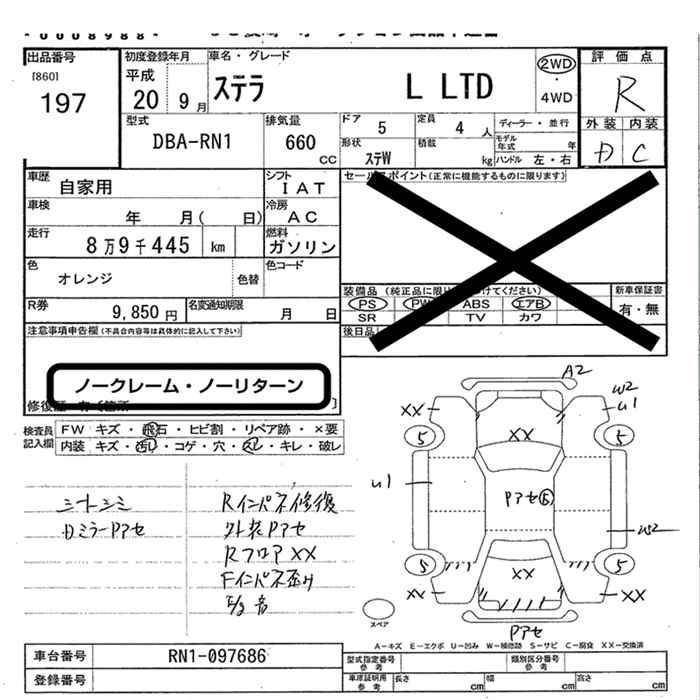 出品番号
[860]
197
初度登録年月
平成
20 9 月
車名・グレード
ステラ L LTD
2WD
・
4WD
評価点
R
外装 内装
D C
型式
DBA-RN1
排気量
660
CC
ドア
5
定員
4 人
ディーラー・並行
モデル年式 年
形状
ステW
積載
kg
ハンドル 左・右
車歴
自家用
シフト
IAT
セールスポイント(正常に機能するものに限ります)
車検
年 月( 日)
冷房
AC
走行
8万9千445 km
燃料
ガソリン
色
オレンジ
色替
色コード
装備品 (純正品に限り
けてください)
PS PW ABS エアB
SR TV カワ
新車保証書
有・無
R券
9,850 円
名変通知期限
月 日
後日品
注意事項申告欄(不具合内容等は具体的に記入して下さい)
ノークレーム・ノーリターン
検査員記入欄
FW キズ・飛石・ヒビ割・リペア跡・×要
内装 キズ・汚れ・コゲ・穴・スレ・キレ・破レ
シートシミ
DミラーPアセ
Rインパネ修復
外装Pアセ
RフロアXX
Fインパネ歪み
E/g 音
A2
XX
W2
U1
5
5
XX
U1
Pアセ⑤
W2
5
5
XX
XX
XX
Pアセ
スペア
A-キズ E-エクボ U-凹み W-補修跡 S-サビ C-腐食 XX-交換済
車台番号
RN1-097686
登録番号
型式指定番号
参考
類別区分番号
参考
車庫証明用
参考
長さ cm
幅 cm
高さ cm